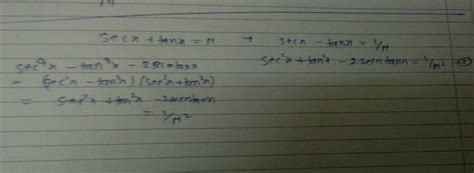 secx + tanx = n → secx - tanx = 1/n
sec⁴x - tan⁴x - 2secxtanx sec²x + tan²x - 2secx tanx = 1/n² -
= (sec²x - tan²x) (sec²x + tan²x)
= sec²x + tan²x - 2secxtanx
= 1/n²